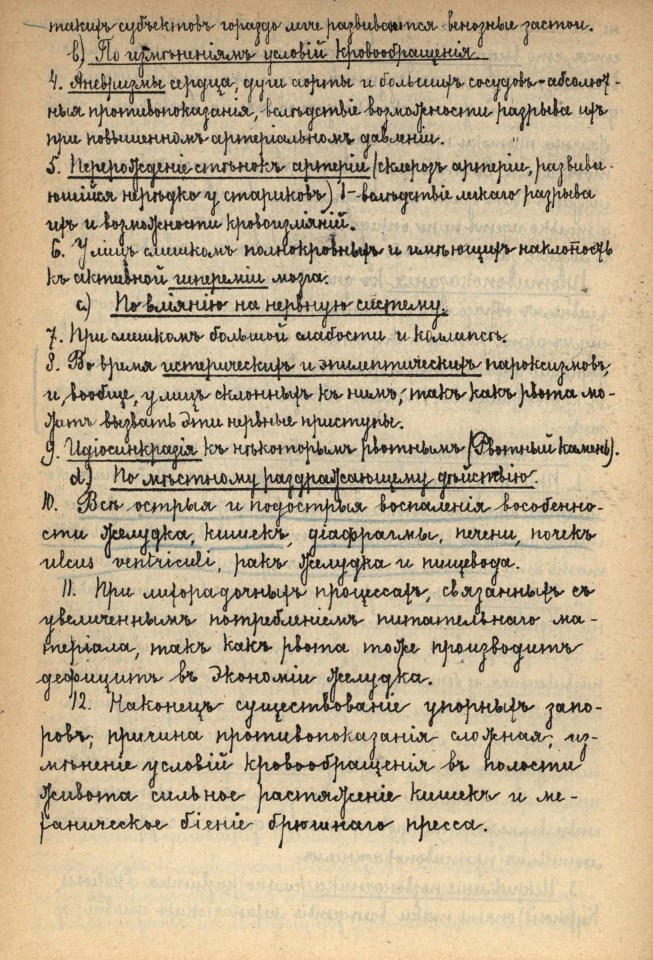 такихъ субъектовъ гораздо легче развиваются венозные застои.
b) По измѣненіямъ условій кровообращенія
4. Аневризмы сердца, дуги аорты и большихъ сосудовъ – абсолют-
ныя противопоказанія, – вслѣдствіе возможности разрыва ихъ
при повышенномъ артеріальномъ давленіи.
5. Перерожденіе стѣнокъ артеріи (склерозъ артеріи, развива-
ющійся нерѣдко у стариковъ) – вслѣдствіе легкаго разрыва
ихъ и возможности кровоизліяній.
6. У лицъ слишкомъ полнокровныхъ и имѣющихъ наклоность
къ активной гипереміи мозга.
c) По вліянію на нервную систему.
7. При слишкомъ большой слабости и коллапсѣ.
8. Во время истерическихъ и эпилептическихъ пароксизмовъ,
и, вообще, у лицъ склонныхъ къ нимъ, – такъ какъ рвота мо-
жетъ вызвать эти нервные приступы.
9. Идіосинкразія къ нѣкоторымъ рвотнымъ (Рвотный камень).
d) По мѣстному раздражающему дѣйствію.
10. Всѣ острыя и подострыя воспаленія вособенно-
сти желудка, кишекъ, діафрагмы, печени, почекъ
ulcus ventriculi, ракъ желудка и пищевода.
11. При лихорадочныхъ процессахъ, связанныхъ съ
увеличеннымъ потребленіемъ питательнаго ма-
теріала, такъ какъ рвота тоже производитъ
дефицитъ въ экономіи желудка.
12. Наконецъ существованіе упорныхъ запо-
ровъ; причина противопоказанія сложная; из-
мѣненіе условій кровообращенія въ полости
живота сильное растяженіе кишекъ и ме-
ханическое біеніе брюшнаго пресса.